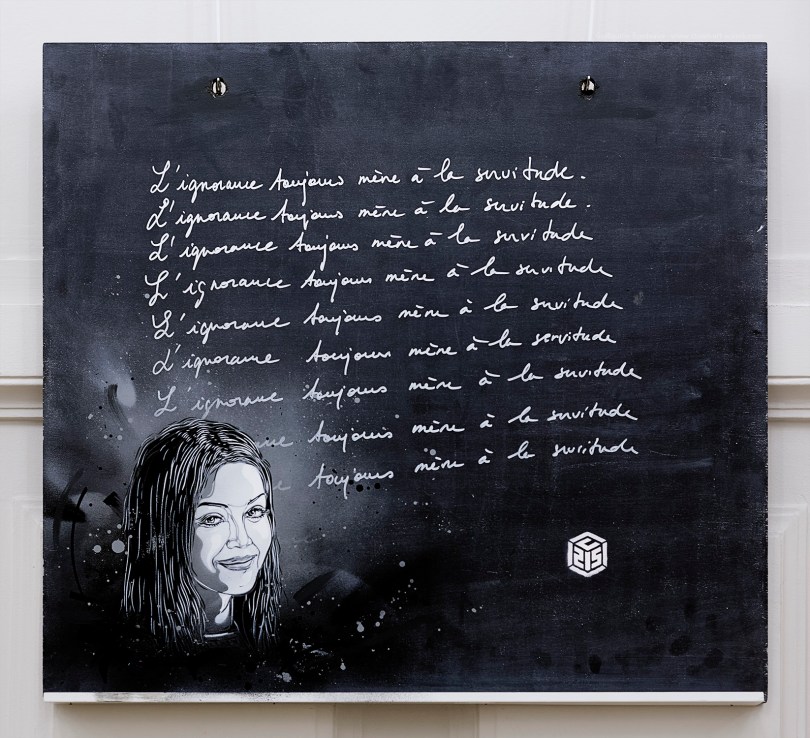 L'ignorance toujours mène à la servitude.
L'ignorance toujours mène à la servitude.
L'ignorance toujours mène à la servitude
L'ignorance toujours mène à la servitude
L'ignorance toujours mène à la servitude
L'ignorance toujours mène à la servitude
L'ignorance toujours mène à la servitude
ce toujours mène à la servitude
toujours mène à la servitude
C215